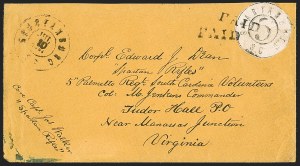 SPARTANBURG
10
PAID
PAID
5
Corpl. Edward J. Dean
"Spartan Rifles"
5 Palmetto Regt South Carolina Volunteers
Col: M. Jenkins Commander
Tudor Hall P.O.
Near Manassas Junction
Virginia
Care Capt. Jos. Walker